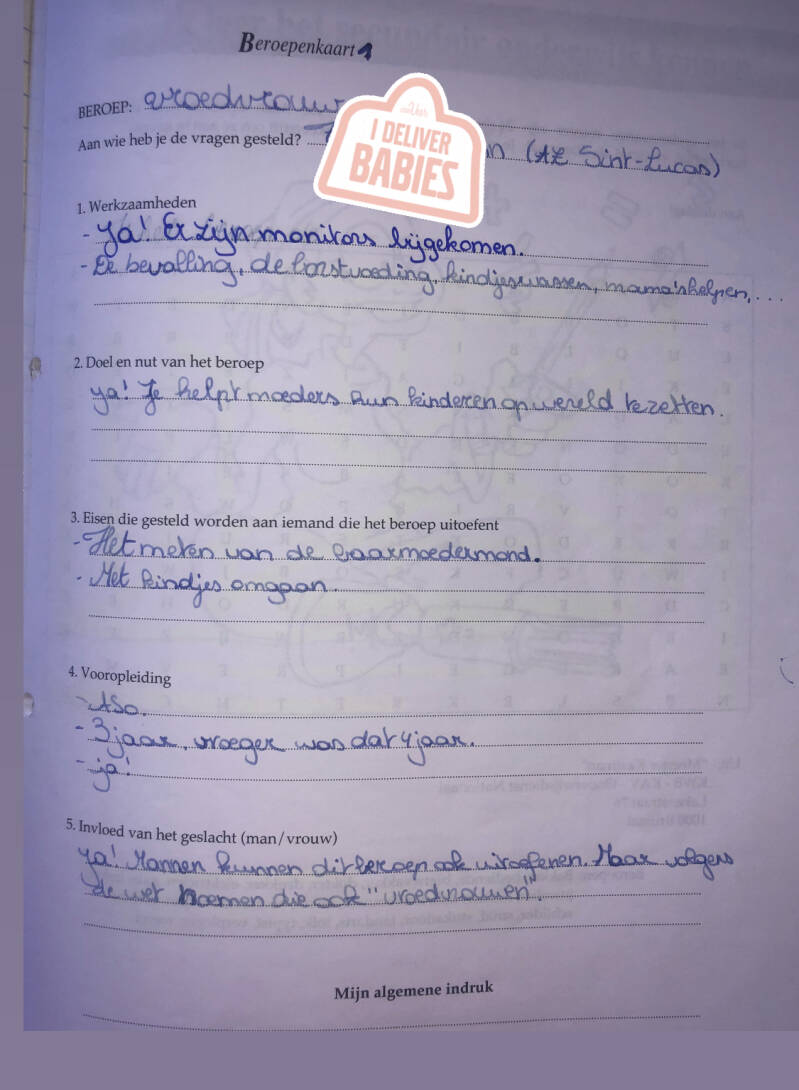 Beroepenkaart 1
BEROEP: vroedvrouw
Aan wie heb je de vragen gesteld? (AZ Sint-Lucas)
I DELIVER
BABIES
1. Werkzaamheden
- Ya! Er zijn monitors bijgekomen.
- De bevalling, de borstvoeding, kindjes wassen, mama's helpen, ...
2. Doel en nut van het beroep
ya! Je helpt moeders hun kinderen op wereld te zetten.
3. Eisen die gesteld worden aan iemand die het beroep uitoefent
- Het meten van de baarmoedermond.
- Met kindjes omgaan.
4. Vooropleiding
- ASO.
- 3 jaar, vroeger was dat 4 jaar.
- ja!
5. Invloed van het geslacht (man/vrouw)
ya! Mannen kunnen dit beroep ook uitoefenen. Maar volgens
de wet noemen die ook "vroedvrouwen".
Mijn algemene indruk